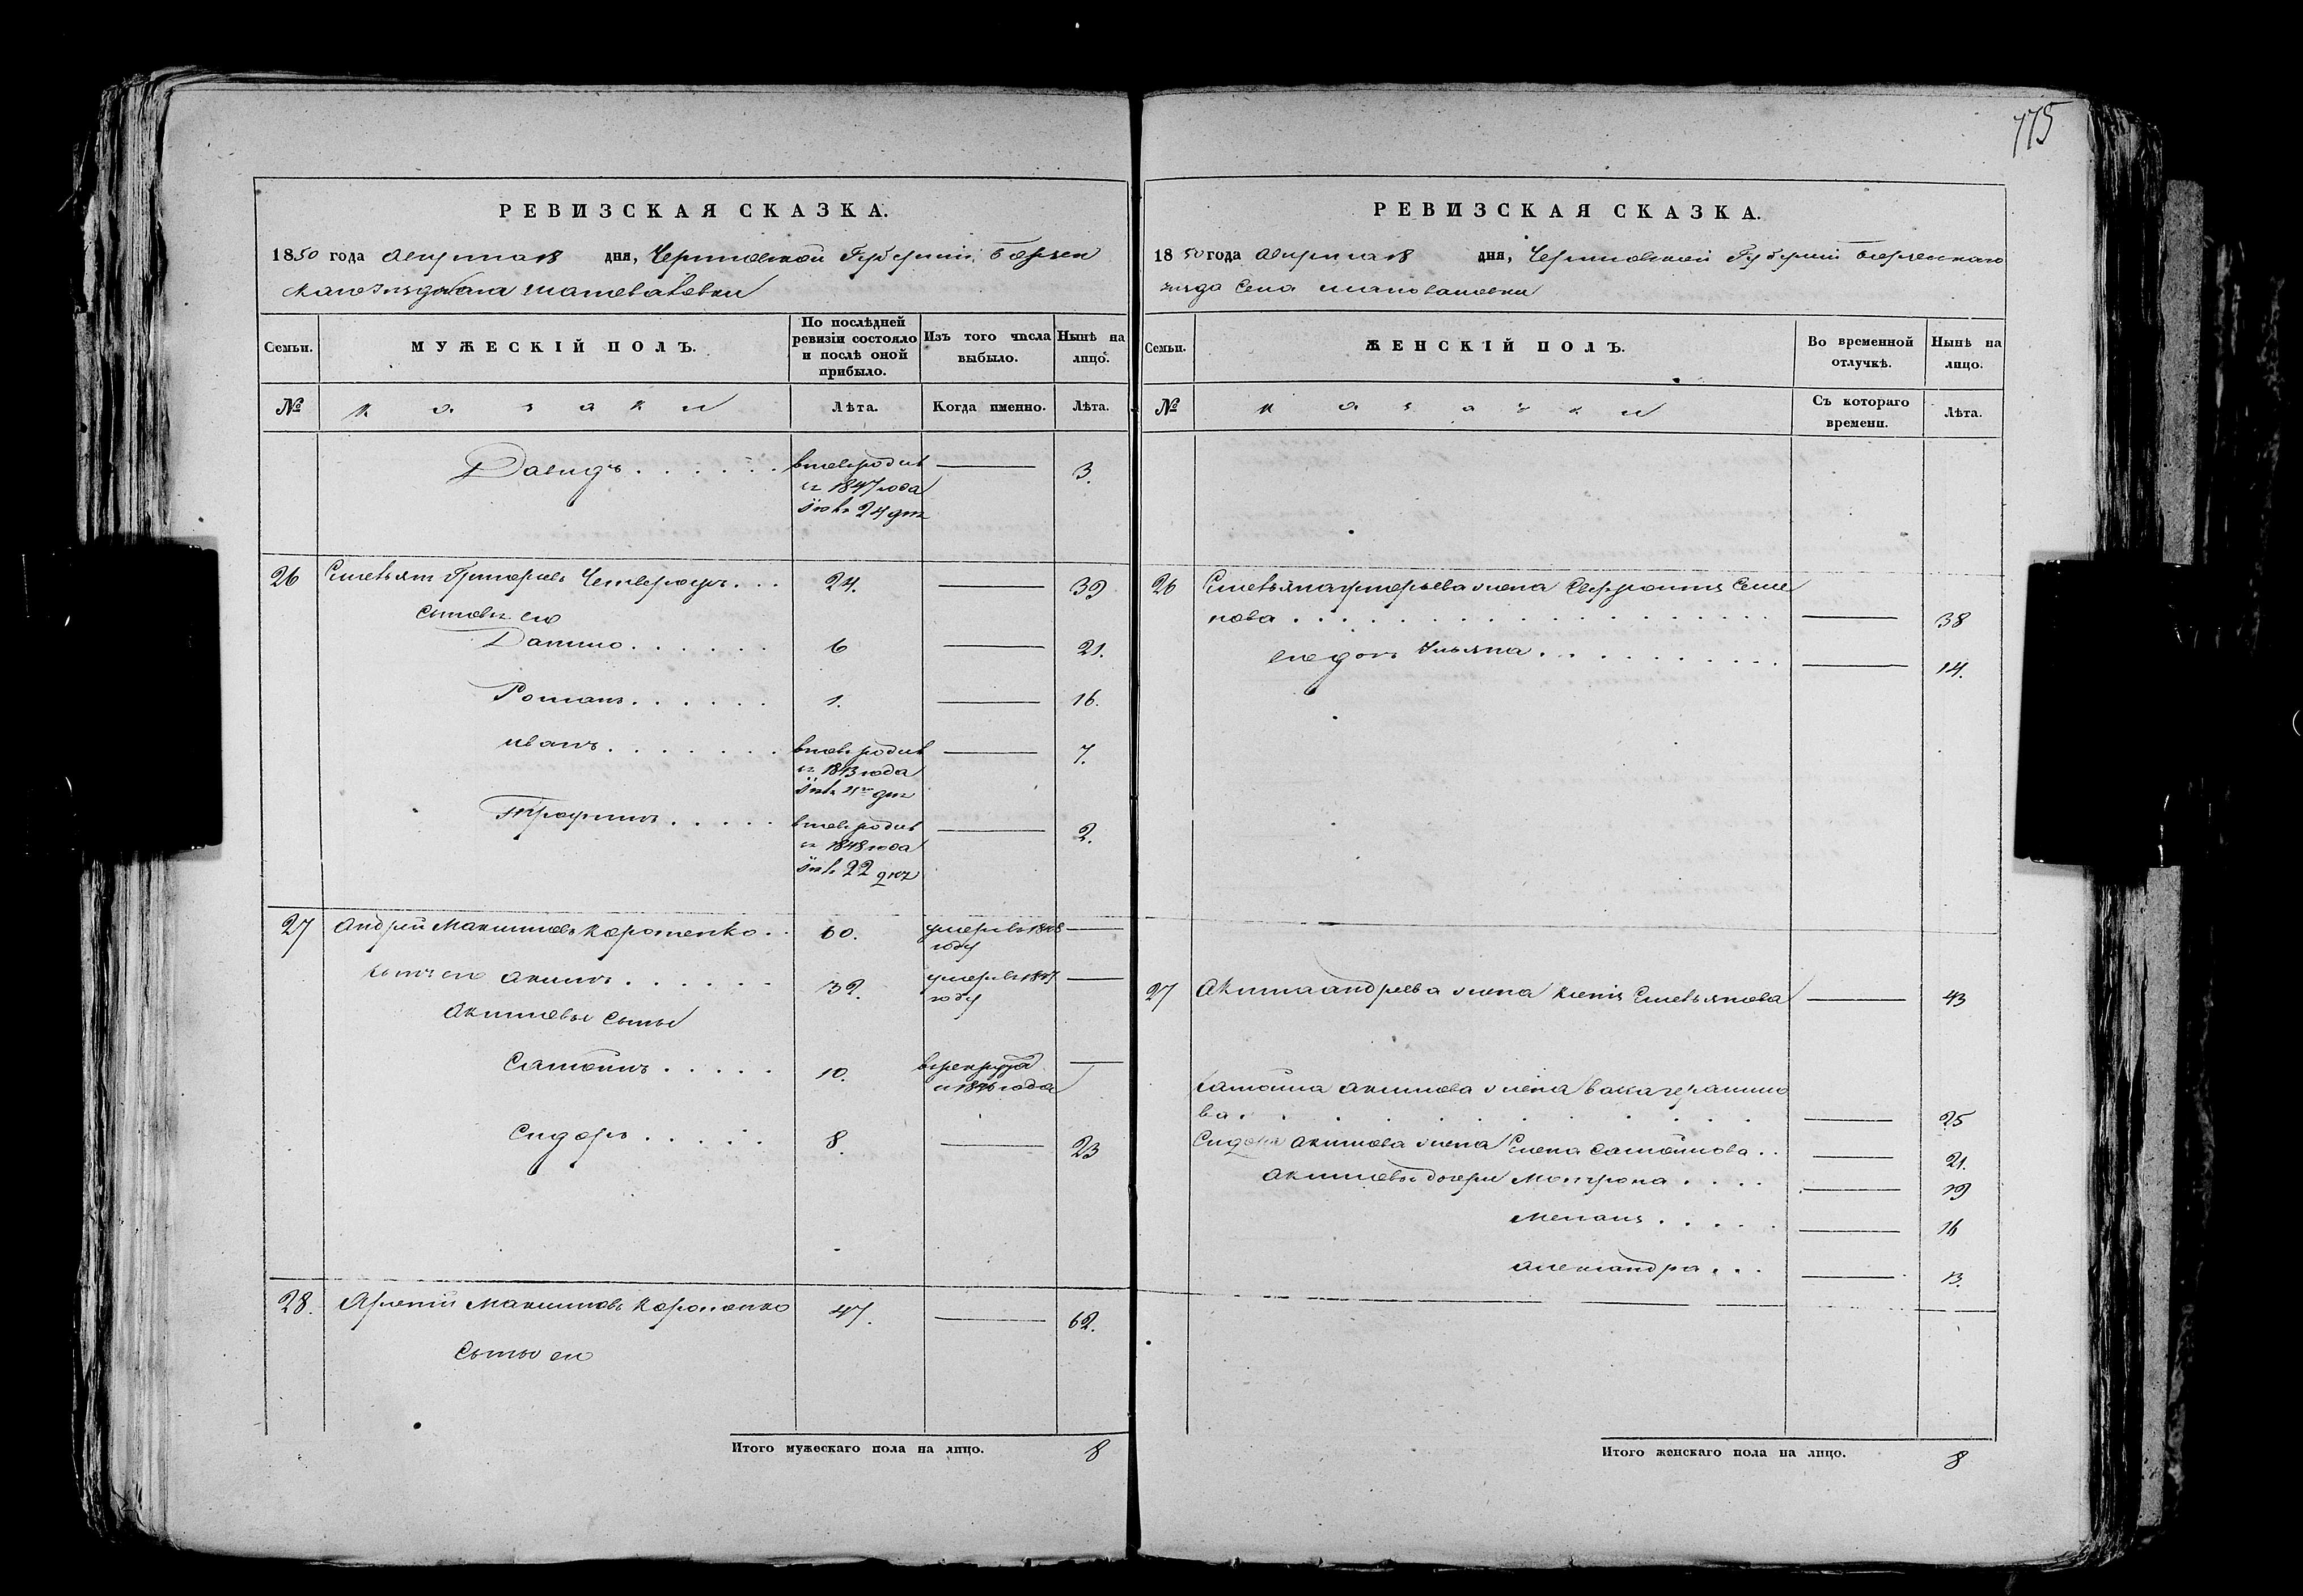 775
РЕВИЗСКАЯ СКАЗКА.
1850 года августа 18 дня, Черниговской Губернии Борзен
скаго уезда села Шаповаловки
Семьи.
МУЖЕСКІЙ ПОЛЪ.
По послѣдней
ревизіи состояло
и послѣ оной
прибыло.
Изъ того числа
выбыло.
Нынѣ на
лицо.
№
козаки
Лѣта.
Когда именно.
Лѣта.
Давидъ . . . . . .
вновь родив
съ 1847 года
24 дня
3.
26
Емельян Григорьев . . .
24.
39
сыновья его
Данило . . . . . .
6
21.
Романъ . . . . . .
1.
16.
иванъ . . . . . . .
вновь родив
съ 1843 года
дня
7.
Трофимъ . . . . .
вновь родив
съ 1848 года
22 дня
2.
27
Андрей Максимовъ Коротенко . .
60.
умеръ въ 1848
году
сынъ его Акимъ . . . . . .
32.
умеръ въ 1847
году
Акимовы сыны
Самойлъ . . . . .
10.
в рекрута
съ 1846 года
Сидоръ . . . . .
8.
23
28.
Максимовъ Коротенко
47.
62.
Сыны его
Итого мужескаго пола на лицо. 8
РЕВИЗСКАЯ СКАЗКА.
1850 года августа 18 дня, Черниговской Губернии Борзенскаго
уезда Села Шаповаловки
Семьи.
ЖЕНСКІЙ ПОЛЪ.
Во временной
отлучкѣ.
Нынѣ на
лицо.
№
козачки
Съ котораго
времени.
Лѣта.
26
Емельяна Григорьева жена Евфросинія Семе
нова . . . . . . . . . . . . . . . . . .
38
его дочь Ульяна . . . . . . . . . .
14.
27
Акима андреева жена Ксенія Емельянова
43
Самойла акимова жена Васса гераимо
ва . . . . . . . . . . .
25
Сидора акимова жена Елена Самойлова . .
21.
акимовы дочери Мотрона . . . .
19
Мелания . . . . .
16
александра . . .
13.
Итого женскаго пола на лицо. 8